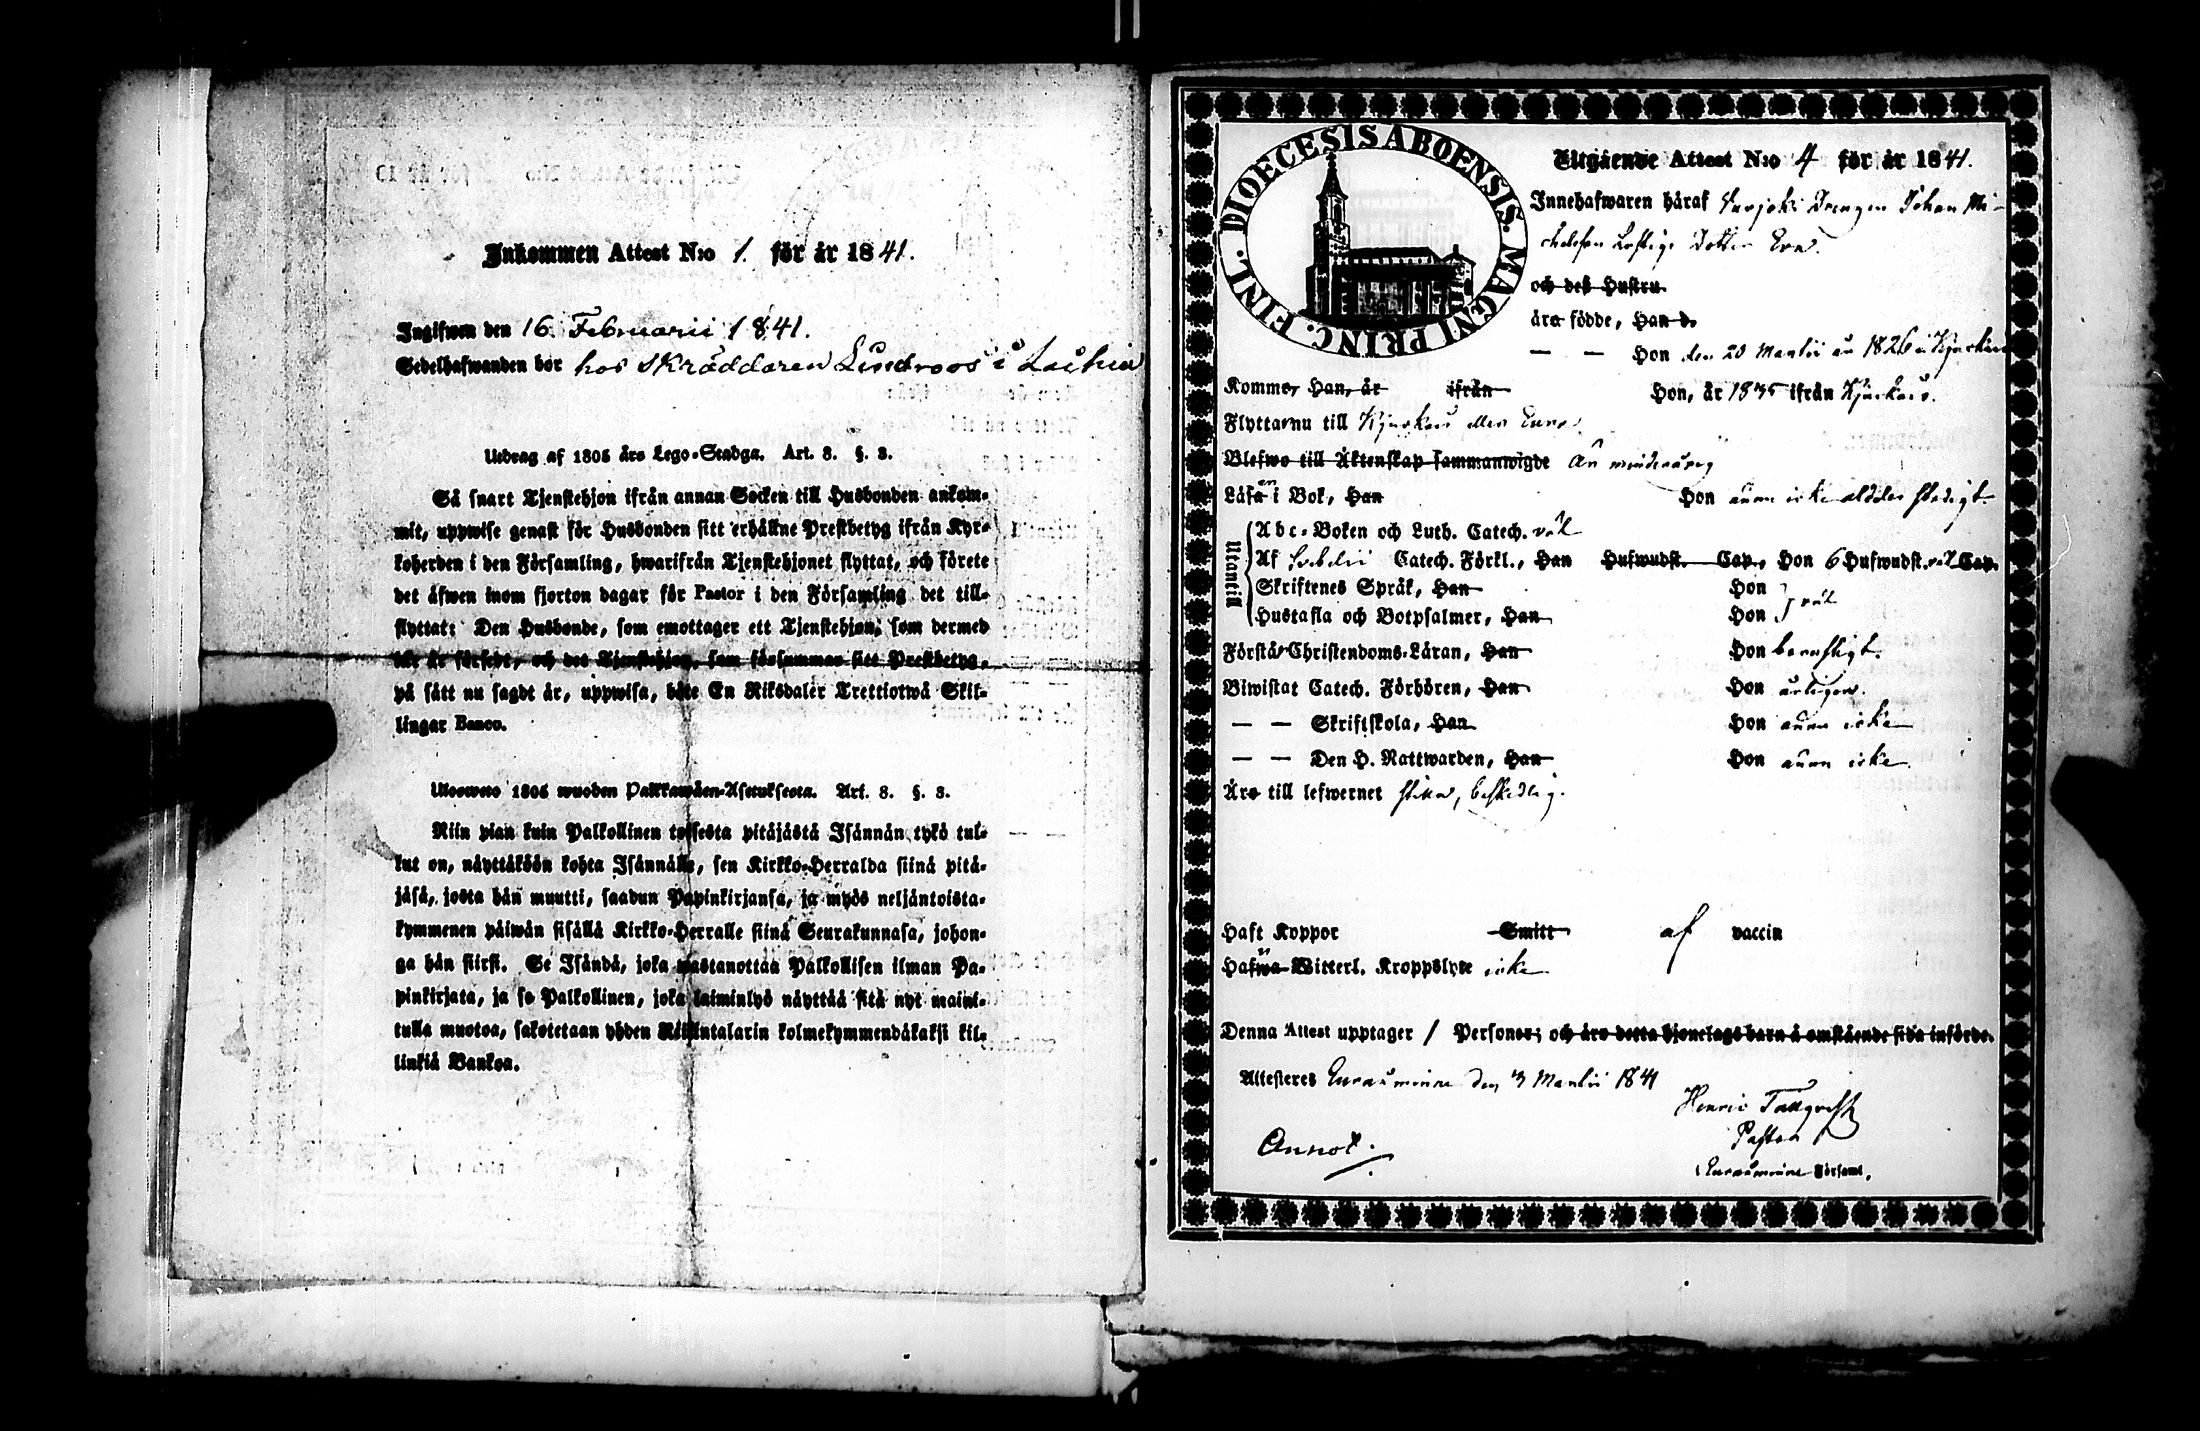 Inkommen Attest N:o 1. för år 1841.
Ingifwen den 16. Februarii 1841.
Sedelhafwanden bor hos skräddaren Lindroos i Laihia
Utdrag af 1805 års Lego-Stadga. Art. 8. §. 3.
Så snart Tjenstehjon ifrån annan Socken till Husbonden ankom-
mit, uppwise genast för Husbonden sitt erhållne Prestbetyg ifrån Kyr-
koherden i den Församling, hwarifrån Tjenstehjonet flyttat, och förete
det äfwen inom fjorton dagar för Pastor i den Församling det till-
flyttat: Den Husbonde, som emottager ett Tjenstehjon, som dermed
icke är försedt, och det Tjenstehjon, som försummar sitt Prestbetyg,
på sätt nu sagdt är, uppwisa, böte En Riksdaler Trettiotwå Skil-
lingar Banco.
Ulosweto 1805 wuoden Palkkawäen-Asetuksesta. Art. 8. §. 3.
Niin pian kuin Palkollinen toisesta pitäjästä Isännän tykö tul-
lut on, näyttäköön kohta Isännälle, sen Kirkko-Herralda siinä pitä-
jäsä, josta hän muutti, saadun Papinkirjansa, ja myös neljäntoista-
kymmenen päiwän sisällä Kirkko-Herralle siinä Seurakunnasa, johon-
ga hän siirsi. Se Isändä, joka wastanottaa Palkollisen ilman Pa-
pinkirjata, ja se Palkollinen, joka laiminlyö näyttää sitä nyt maini-
tulla muotoa, sakotetaan yhden Riksintalarin kolmekymmendäkaksi kil-
linkiä Bankoa.
DIOECESIS ABOENSIS. MAGNI PRINC. FINL.
Utgående Attest N:o 4 för år 1841.
Innehafwaren häraf Drengen Johan Mi-
chelsson Dotter Eva.
och deß Hustru
äro födde, Han d.
— — Hon den 20 Martii år 1826 i Kjukais
Kommo, Han, år ifrån Hon, år 1835 ifrån Kjukais.
Flyttar nu till Kjukais eller Eura
Blefwo till Äktenskap sammanwigde Än minderårig
Läsa i Bok, Han Hon ännu icke alldes stadigt
Utantill
Abc-Boken och Luth. Catech. väl
Af Svebelii Catech. Förkl., Han Hufwudst. Cap., Hon 6 Hufwudst. väl Cap.
Skriftenes Språk, Han Hon
Hustafla och Botpsalmer, Han Hon } väl
Förstå Christendoms-Läran, Han Hon
Biwistat Catech. Förhören, Han Hon årligen.
— — Skriftskola, Han Hon ännu icke
— — Den H. Nattwarden, Han Hon ännu icke
Äro till lefwernet stilla, beskedlig.
Haft Koppor Smitt af vaccin
Hafwa Witterl. Kroppslyte icke
Denna Attest upptager 1 Personer; och äro detta hjonelags barn å omstående sida införde.
Attesteres Euraåminne den 3 Martii 1841
Henric Tallqvist
Pastor
Annot.
i Euraåminne Församl.